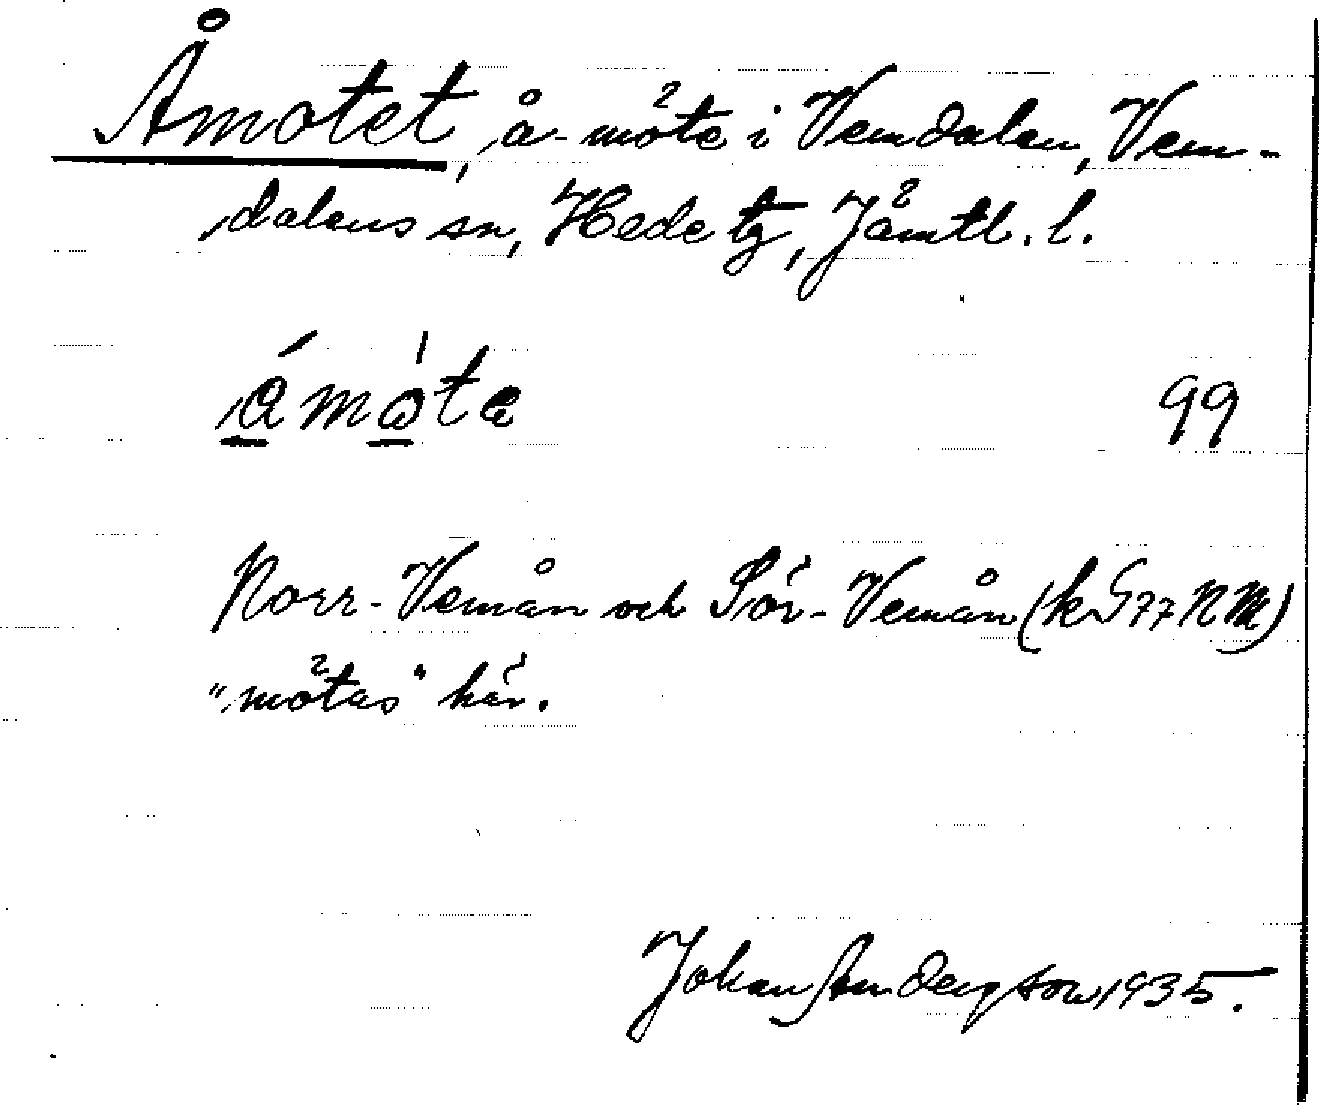 Åmotet, å-möte i Vemdalen, Vem-
dalens sn, Hede tg, Jämtl. l.
åmòta 99
Norr-Vemån och Sör-Vemån (k S 77 NM)
"mötas" här.
Johan Anderzson 1935.